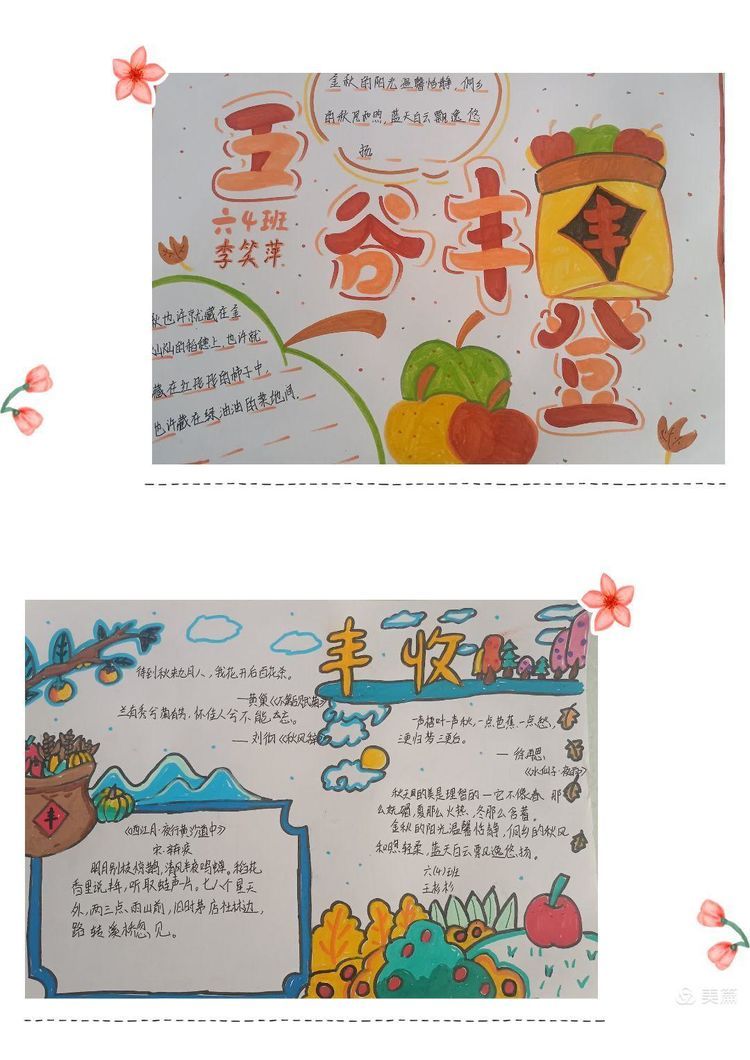 金秋的阳光温馨恬静,侗乡
的秋风和煦,蓝天白云飘逸悠
扬
五
谷
丰
登
丰
六4班
李笑萍
秋也许就藏在金
灿灿的稻穗上,也许就
藏在红彤彤的柿子中,
也许藏在绿油油的菜地间.
丰收
待到秋来九月八,我花开后百花杀。
——黄巢《不第后赋菊》
兰有秀兮菊有芳,怀佳人兮不能忘。
——刘彻《秋风辞》
一声梧叶一声秋,一点芭蕉一点愁,
三更归梦三更后。
——徐再思
《水仙子·夜雨》
秋天的美是理智的—它不像春那
么妩媚,夏那么火热,冬那么含蓄。
金秋的阳光温馨恬静,侗乡的秋风
和煦轻柔,蓝天白云飘逸悠扬。
六(4)班
王杉杉
丰
《西江月·夜行黄沙道中》
宋·辛弃疾
明月别枝惊鹊,清风半夜鸣蝉。稻花
香里说丰年,听取蛙声一片。七八个星天
外,两三点雨山前,旧时茅店社林边,
路转溪桥忽见。
美篇